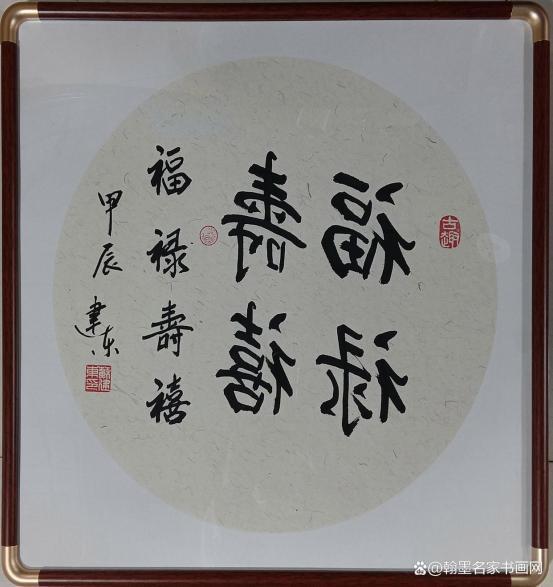 古趣
福禄
壽禧
福禄壽禧
甲辰
建东
@翰墨名家书画网